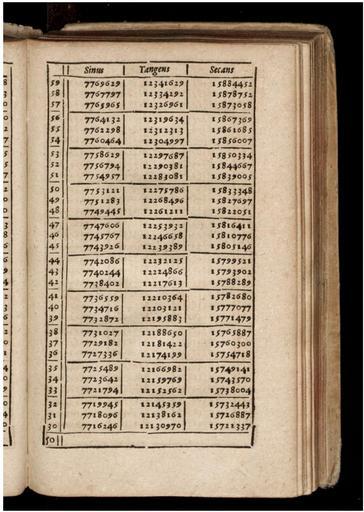 Sinus Tangens Secans
59 7769629 12341629 15884452
58 7767797 12334292 15878752
57 7765965 12326961 15873058
56 7764132 12319634 15867369
55 7762298 12312313 15861685
54 7760464 12304997 15856007
53 7758629 12297687 15850334
52 7756794 12290381 15844667
51 7754957 12283081 15839005
50 7753121 12275786 15833348
49 7751283 12268496 15827697
48 7749445 12261211 15822051
47 7747606 12253932 15816411
46 7745767 12246658 15810776
45 7743926 12239389 15805146
44 7742086 12232125 15799521
43 7740244 12224866 15793902
42 7738402 12217613 15788289
41 7736559 12210364 15782680
40 7734716 12203121 15777077
39 7732872 12195883 15771479
38 7731027 12188650 15765887
37 7729182 12181422 15760300
36 7727336 12174199 15754718
35 7725489 12166982 15749141
34 7723642 12159769 15743570
33 7721794 12152562 15738004
32 7719945 12145359 15732443
31 7718096 12138162 15726887
30 7716246 12130970 15721337
50